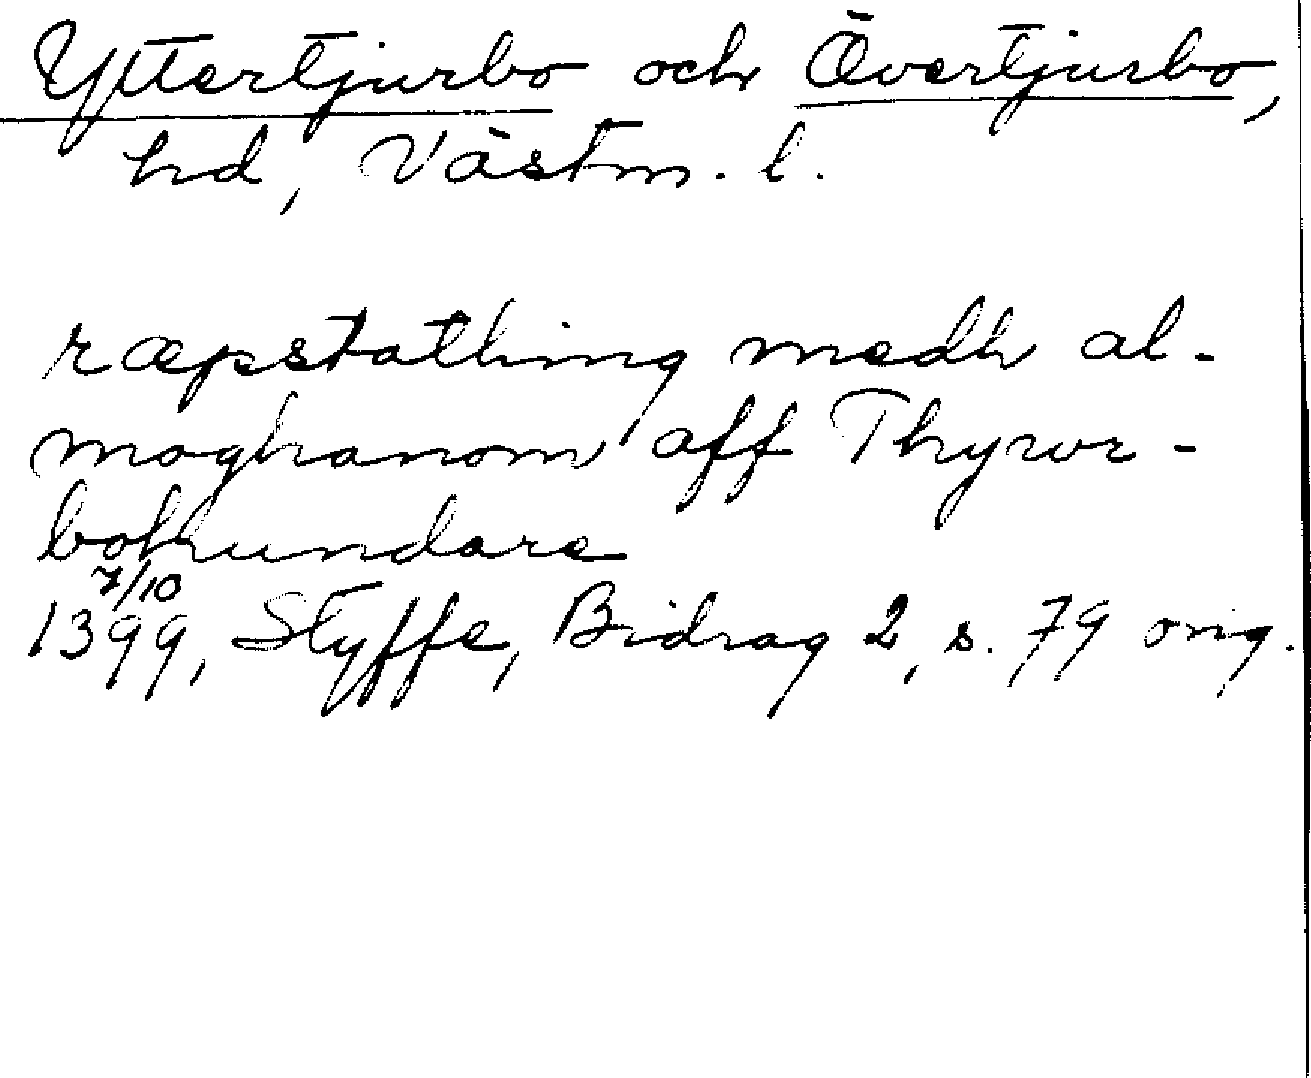 Yttertjurbo och Övertjurbo,
hd, Västm. l.
ræpstathing medh al-
moghanom aff Thywr-
bohundare
7/10
1399, Styffe, Bidrag 2, s. 79 orig.